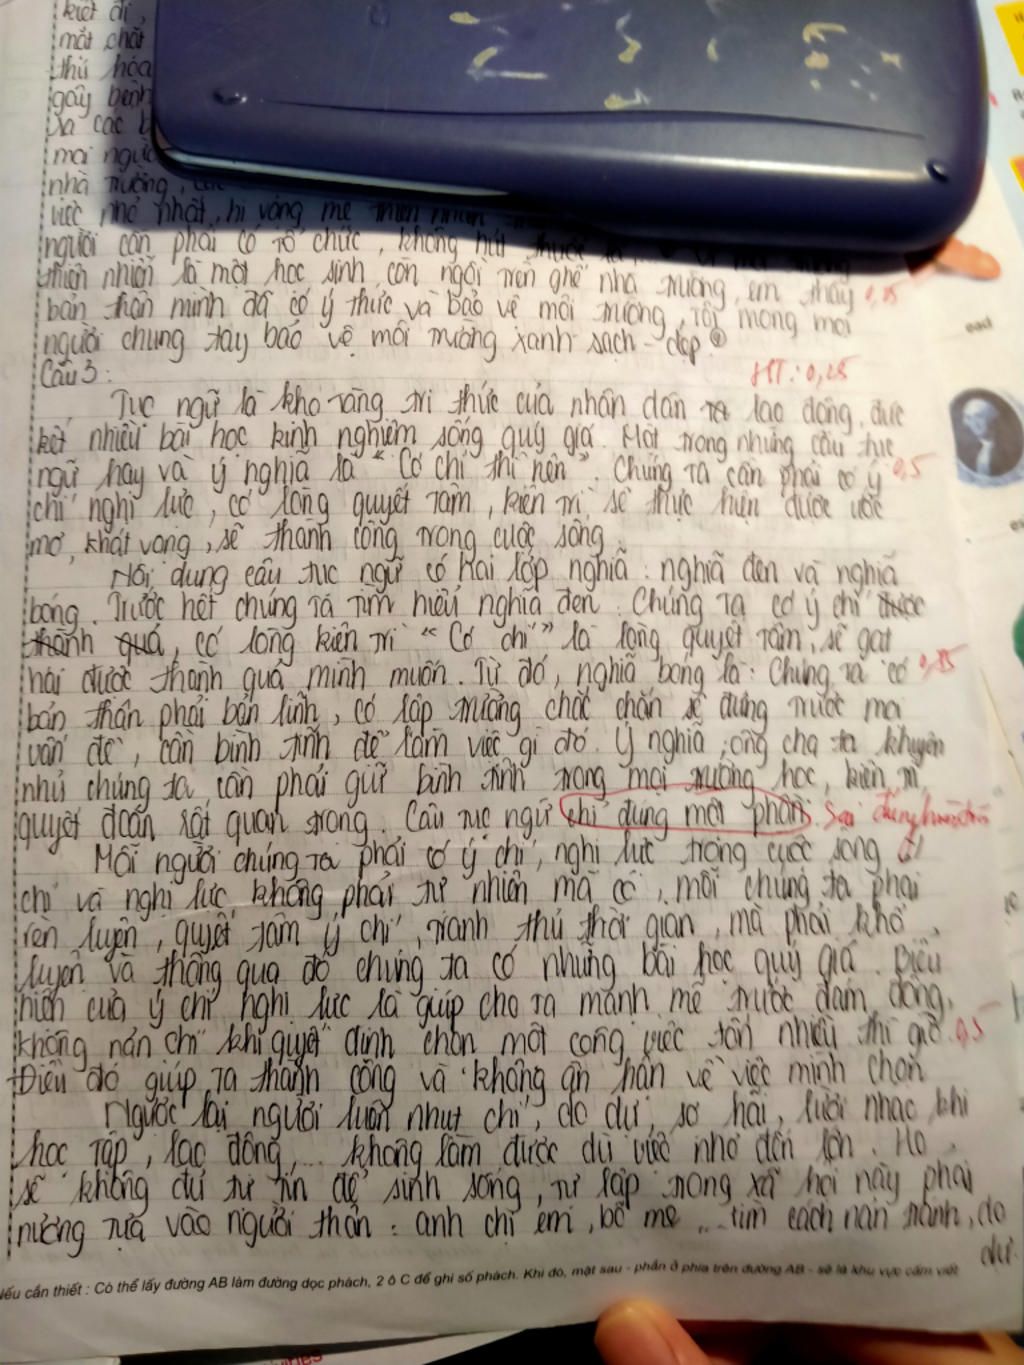 kiệt đi,
mất chất
thú hóa
gây bệnh
ra các b
mọi ngườ
nhà trường,
việc nhỏ nhất, hi vọng mẹ thiên nhiên
người cần phải có tổ chức, không hút thuốc lá,
thiên nhiên là một học sinh còn ngồi trên ghế nhà trường, em thấy 0,25
bản thân mình đã có ý thức và bảo vệ môi trường, tôi mong mọi
người chung tay bảo vệ môi trường xanh - sạch - đẹp.
HT: 0,25
Câu 3:
Tục ngữ là kho tàng tri thức của nhân dân ta lao động, đúc
kết nhiều bài học kinh nghiệm sống quý giá. Một trong những câu tục
ngữ hay và ý nghĩa là "Có chí thì nên". Chúng ta cần phải có ý 0,5
chí nghị lực, có lòng quyết tâm, kiên trì sẽ thực hiện được ước
mơ, khát vọng, sẽ thành công trong cuộc sống.
Nội dung câu tục ngữ có hai lớp nghĩa: nghĩa đen và nghĩa
bóng. Trước hết chúng ta tìm hiểu nghĩa đen. Chúng ta có ý chí được
thành quả, có lòng kiên trì "Có chí" là lòng quyết tâm, sẽ gặt
hái được thành quả mình muốn. Từ đó, nghĩa bóng là: Chúng ta có
bản thân phải bản lĩnh, có lập trường chắc chắn sẽ đứng trước mọi
vấn đề, cần bình tĩnh để làm việc gì đó. Ý nghĩa, ông cha ta khuyên
nhủ chúng ta cần phải giữ bình tĩnh trong mọi trường học, kiên trì,
quyết đoán rất quan trọng. Câu tục ngữ chỉ đúng một phần. Sai
Mỗi người chúng ta phải có ý chí, nghị lực trong cuộc sống
chí và nghị lực không phải tự nhiên mà có, mỗi chúng ta phải
rèn luyện, quyết tâm ý chí, tranh thủ thời gian, mà phải khổ
luyện và thông qua đó chúng ta có những bài học quý giá. Biểu
hiện của ý chí nghị lực là giúp cho ta mạnh mẽ trước đám đông,
không nản chí khi quyết định chọn một công việc tốn nhiều thì giờ. 0,5
Điều đó giúp ta thành công và không ân hận về việc mình chọn
Ngược lại người luôn nhụt chí, do dự, sợ hãi, lười nhác khi
học tập, lao động,... không làm được dù việc nhỏ đến lớn. Họ
sẽ không đủ tự tin để sinh sống, tự lập trong xã hội này phải
nương tựa vào người thân: anh chị em, bố mẹ... tìm cách nản tránh, do
dự.
Nếu cần thiết : Có thể lấy đường AB làm đường dọc phách, 2 ô C để ghi số phách. Khi đó, mặt sau - phần ở phía trên đường AB - sẽ là khu vực cấm viết